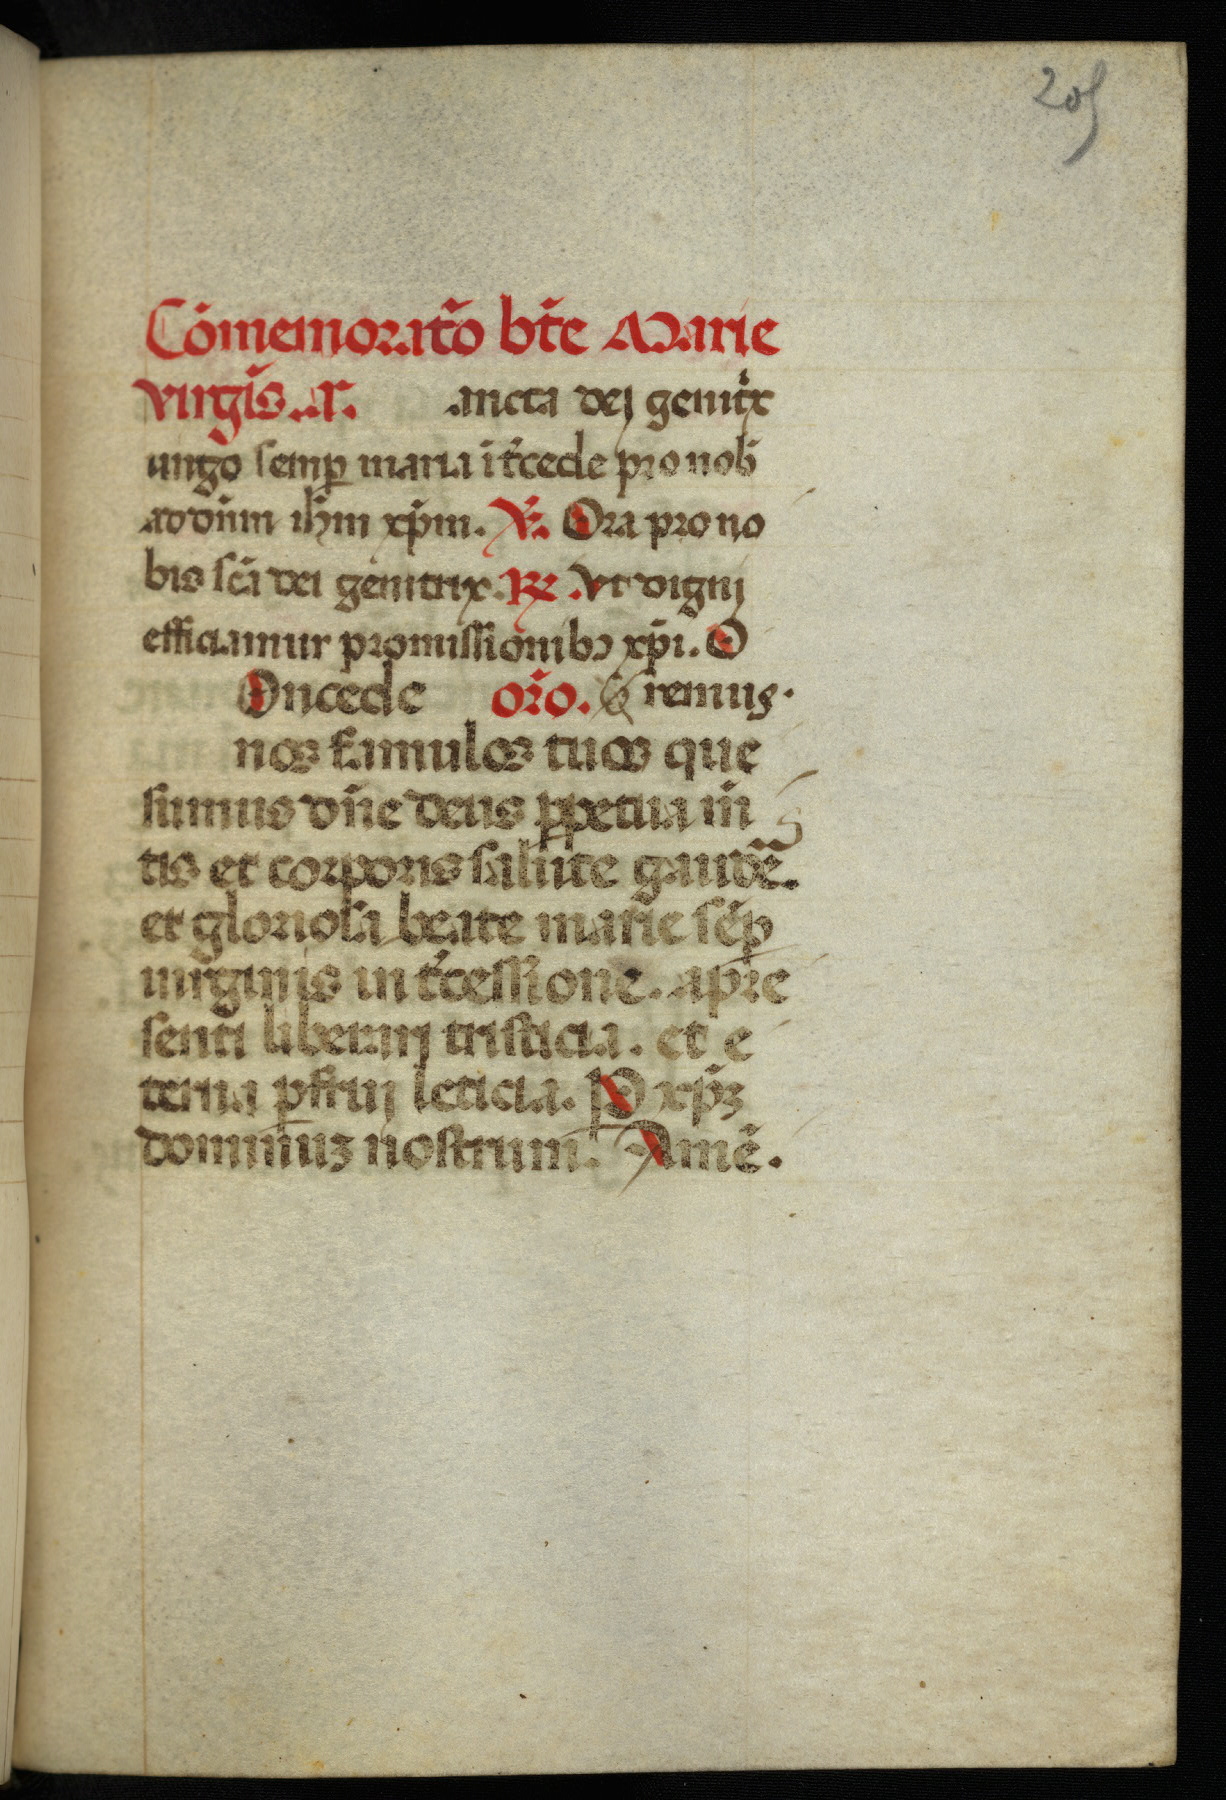 205
Cōmemorat̄o bt̄e Marie
virgīs. a͞.   ancta dej genitx̓
uirgo semꝑ maria īt̓cede pro nob̄
ad dn̄m ih̄m xp̄m. ℣. Ora pro no
bis sc̄a dei genitrix. ℟. Vt dignj
efficiamur promissionibꝰ xp̄i. O
Oncede  or̄o.  remus.
nos famulos tuos que
sumus dn̄e deus ꝑpetua m̄
tis et corporis salute gaudē.
et gloriosa beate marie sēꝑ
uirginis in t̓cessione. a pre
senti liberarj tristicia. et e
terna ꝑfruj leticia. P xp̄ꝫ
dominuꝫ nostrum. Amē.